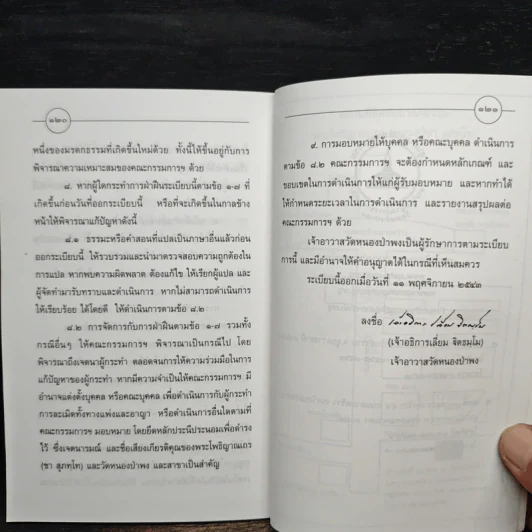 ๑๒๐
หนึ่งของมรดกธรรมที่เกิดขึ้นใหม่ด้วย ทั้งนี้ให้ขึ้นอยู่กับการ
พิจารณาความเหมาะสมของคณะกรรมการฯ ด้วย
๘. หากผู้ใดกระทำการฝ่าฝืนระเบียบนี้ตามข้อ ๑-๗ ที่
เกิดขึ้นก่อนวันที่ออกระเบียบนี้ หรือที่จะเกิดขึ้นในกาลข้าง
หน้าให้พิจารณาแก้ปัญหาดังนี้
๘.๑ ธรรมะหรือคำสอนที่แปลเป็นภาษาอื่นแล้วก่อน
ออกระเบียบนี้ ให้รวบรวมและนำมาตรวจสอบความถูกต้องใน
การแปล หากพบความผิดพลาด ต้องแก้ไข ให้เรียกผู้แปล และ
ผู้จัดทำมารับทราบและดำเนินการ หากไม่สามารถดำเนินการ
ให้เรียบร้อย ได้โดยดี ให้ดำเนินการตามข้อ ๘.๒
๘.๒ การจัดการกับการฝ่าฝืนตามข้อ ๑-๗ รวมทั้ง
กรณีอื่นๆ ให้คณะกรรมการฯ พิจารณาเป็นกรณีไป โดย
พิจารณาถึงเจตนาผู้กระทำ ตลอดจนการให้ความร่วมมือในการ
แก้ปัญหาของผู้กระทำ หากมีความจำเป็นให้คณะกรรมการฯ มี
อำนาจแต่งตั้งบุคคล หรือคณะบุคคล เพื่อดำเนินการกับผู้กระทำ
การละเมิดทั้งทางแพ่งและอาญา หรือดำเนินการอื่นใดตามที่
คณะกรรมการฯ มอบหมาย โดยยึดหลักประนีประนอมเพื่อดำรง
ไว้ ซึ่งเจตนารมณ์ และชื่อเสียงเกียรติคุณของพระโพธิญาณเถร
(ชา สุภทฺโท) และวัดหนองป่าพง และสาขาเป็นสำคัญ
๑๒๑
๙. การมอบหมายให้บุคคล หรือคณะบุคคล ดำเนินการ
ตามข้อ ๘.๒ คณะกรรมการฯ จะต้องกำหนดหลักเกณฑ์ และ
ขอบเขตในการดำเนินการให้แก่ผู้รับมอบหมาย และหากทำได้
ให้กำหนดระยะเวลาในการดำเนินการ และรายงานสรุปผลต่อ
คณะกรรมการฯ ด้วย
เจ้าอาวาสวัดหนองป่าพงเป็นผู้รักษาการตามระเบียบ
การนี้ และมีอำนาจให้คำอนุญาตได้ในกรณีที่เห็นสมควร
ระเบียบนี้ออกเมื่อวันที่ ๑๑ พฤศจิกายน ๒๕๔๓
ลงชื่อ
(เจ้าอธิการเลี่ยม ฐิตธมฺโม)
เจ้าอาวาสวัดหนองป่าพง